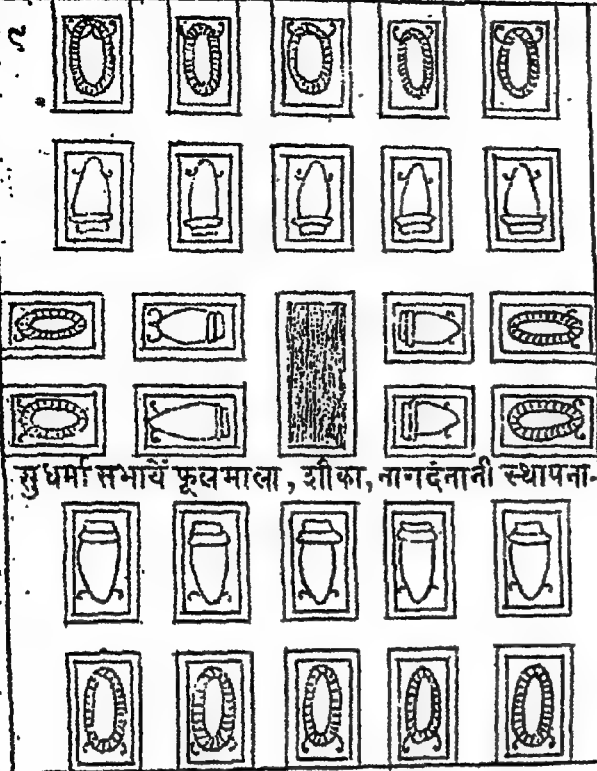 सुधर्मा सभायें फूलमाला, शींका, नागदंतानी स्थापना-